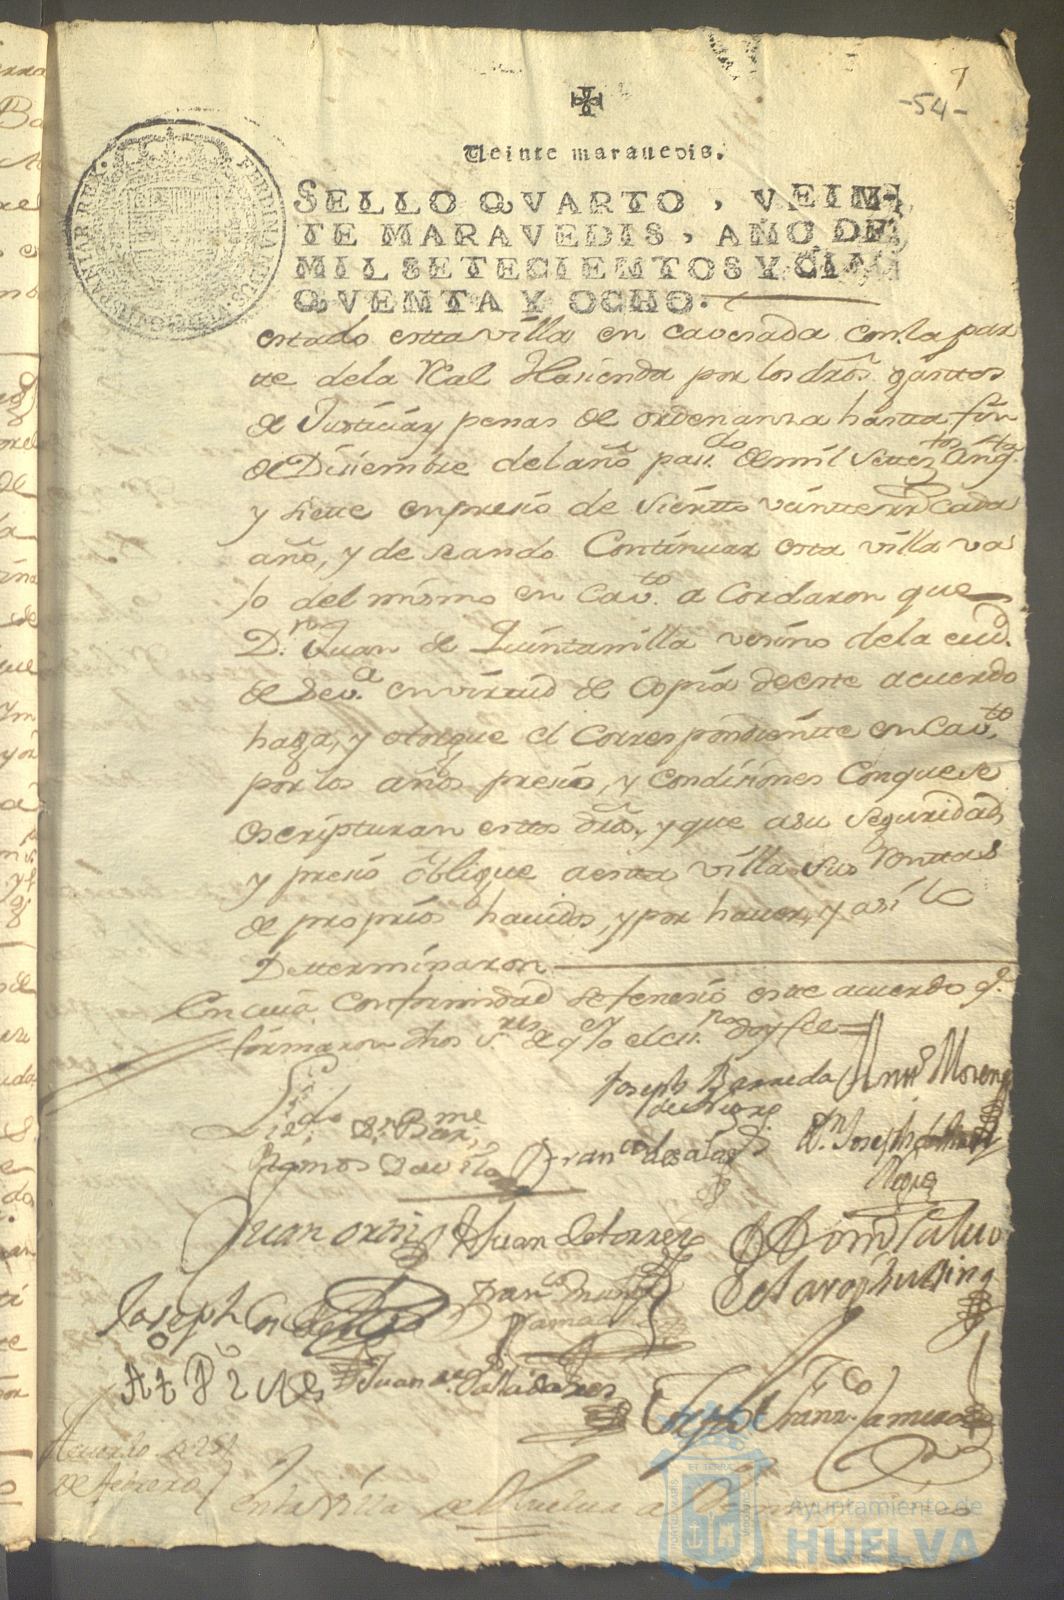 7
-54-
Veinte maravedis.
SELLO QVARTO, VEIN-
TE MARAVEDIS, AÑO DE
MIL SETECIENTOS Y CIN
QVENTA Y OCHO.
FERDINANDUS VI D G HISPANIAR REX
estado estta villa en cavesada con la par
te de la Real Hasienda por los dros gasttos
de Justicia y penas de ordenansa hastta fin
de Disiembre del año pass.do de mil settez.tos
y siette en presio de sientto veintte rr cada
año, y deseando Continuar esta villa va
jo del mismo en Cav.to acordaron que
D.n Juan de Quintanilla vesino de la ciud.
de Sev.a en virtud de Copia de este acuerdo
haga, y otorgue el Correspondientte en Cav.to
por los años presio, y condisiones Conque se
escripturan esttos dros, y que a su seguridad,
y presio obligue a estta villa sus Renttas
de proprios havidos, y por haver, y así lo
Determinaron
En cuia Conformidad se fenesio este acuerdo q.e
firmaron dhos S.res de q yo el ess.no doy fee =
Joseph Barreda Moreno
Lizdo D.n Bar.me
Ramos Davila Fran.co de salas D.n Joseph
Juan ortis Juan de torres
Joseph
Fran.co
Juan
Acuerdo de 25
de febrero
En la Villa de Huelva a
Ayuntamiento de
HUELVA